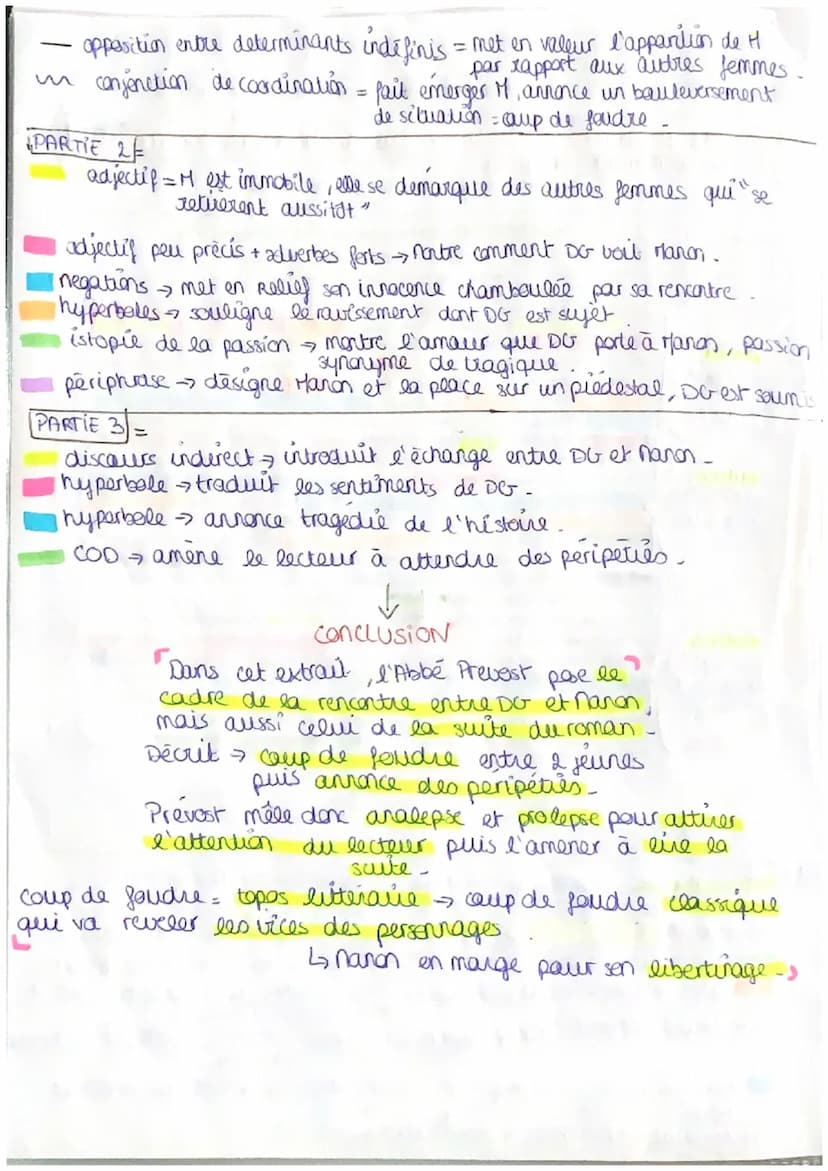 — opposition entre determinants indéfinis = met en valeur l'apparition de M
par rapport aux autres femmes.
conjonction de coordination = fait émerger M, annonce un bouleversement
de situation = coup de foudre -
PARTIE 2 =
adjectif = M est immobile, elle se demarque des autres femmes qui "se
retirèrent aussitôt"
adjectif peu précis + adverbes forts → montre comment DG voit Manon.
negations → met en relief son innocence chamboulée par sa rencontre.
hyperboles → souligne le ravissement dont DG est sujet
istopie de la passion → montre l'amour que DG porte à Manon, passion
synonyme de tragique.
périphrase → désigne Manon et la place sur un piedestal, DG est soumis
PARTIE 3 =
discours indirect → introduit l'échange entre DG et Manon -
hyperbole → traduit les sentiments de DG -
hyperbole → annonce tragédie de l'histoire.
COD → amène le lecteur à attendre des péripéties -
↓
CONCLUSION
Dans cet extrait, l'Abbé Prevost pose le
cadre de la rencontre entre DG et Manon,
mais aussi celui de la suite du roman -
Décrit → coup de foudre entre 2 jeunes
puis annonce des peripéties -
Prévost mêle donc analepse et prolepse pour attirer
l'attention du lecteur puis l'amener à lire la
suite -
coup de foudre = topos littéraire → coup de foudre classique
qui va reveler les vices des personnages.
↳ Manon en marge pour son libertinage -